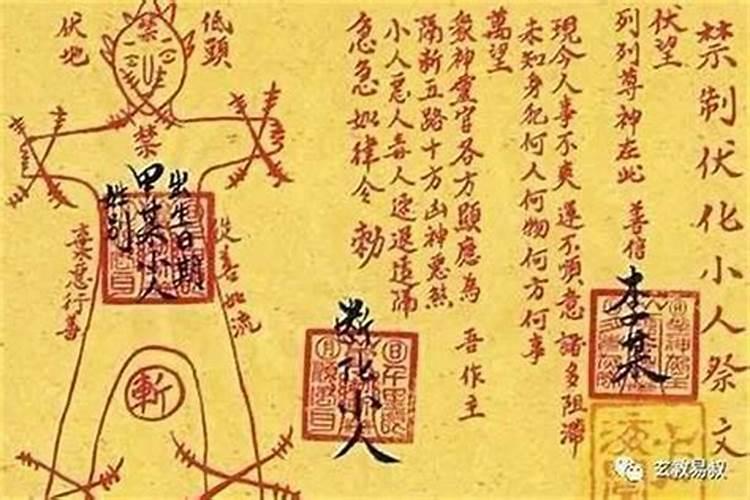 禁制伏化小人祭文
伏望
列列尊神在此 善信
李某
現今人事不爽 運不順意 諸多阻滯
未知身犯何人何物何方何事
萬望
眾神靈官各方顯應為 吾作主
隔斬五路十方凶神惡煞
小人惡人毒人速退遠隔
急急如律令 勅
斷化小人
低頭
伏地
禁
禁
出生日期
甲某小人
姓别
從善如流
棄惡行善
斬
玄教易叔